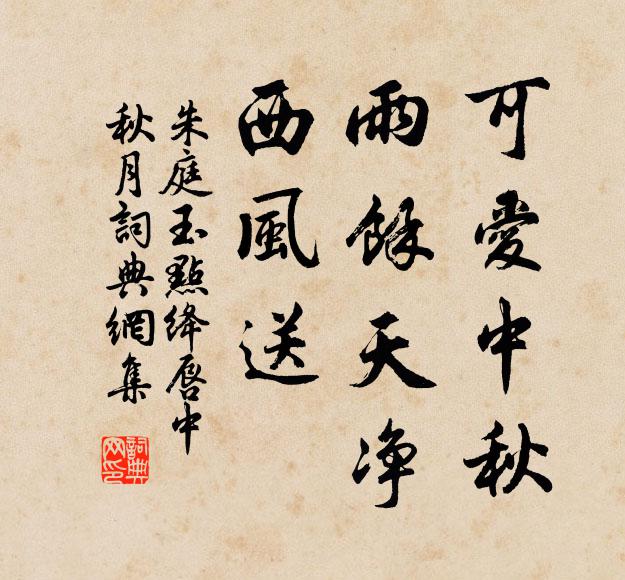 可愛中秋
雨餘天净
西風送
朱庭玉點绛唇中
秋月詞典網集
詞典网印